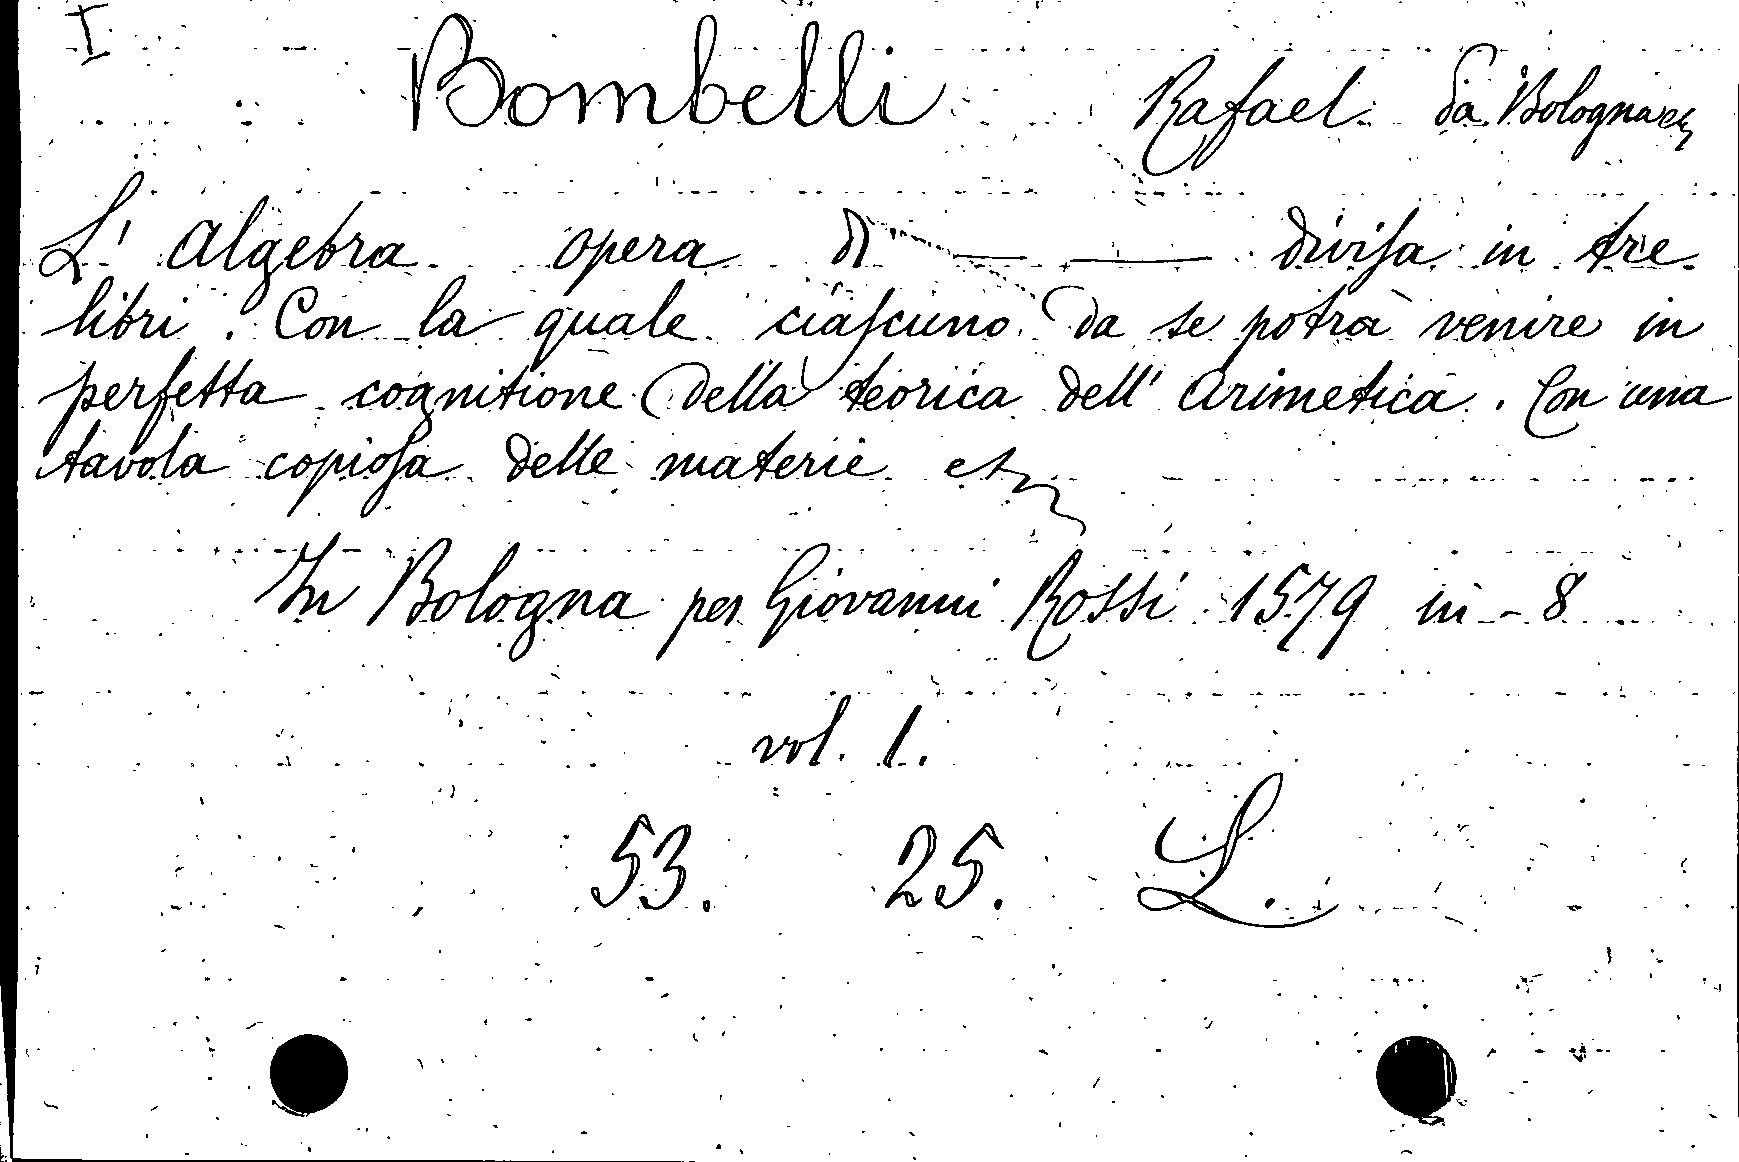 I
Bombelli Rafael da Bologna
L' algebra opera di — — divisa in tre
libri. Con la quale ciascuno da se potrà venire in
perfetta cognitione della teorica dell' arimetica. Con una
tavola copiosa delle materie etc
In Bologna per Giovanni Rossi 1579 in-8
vol. 1.
53. 25. L.